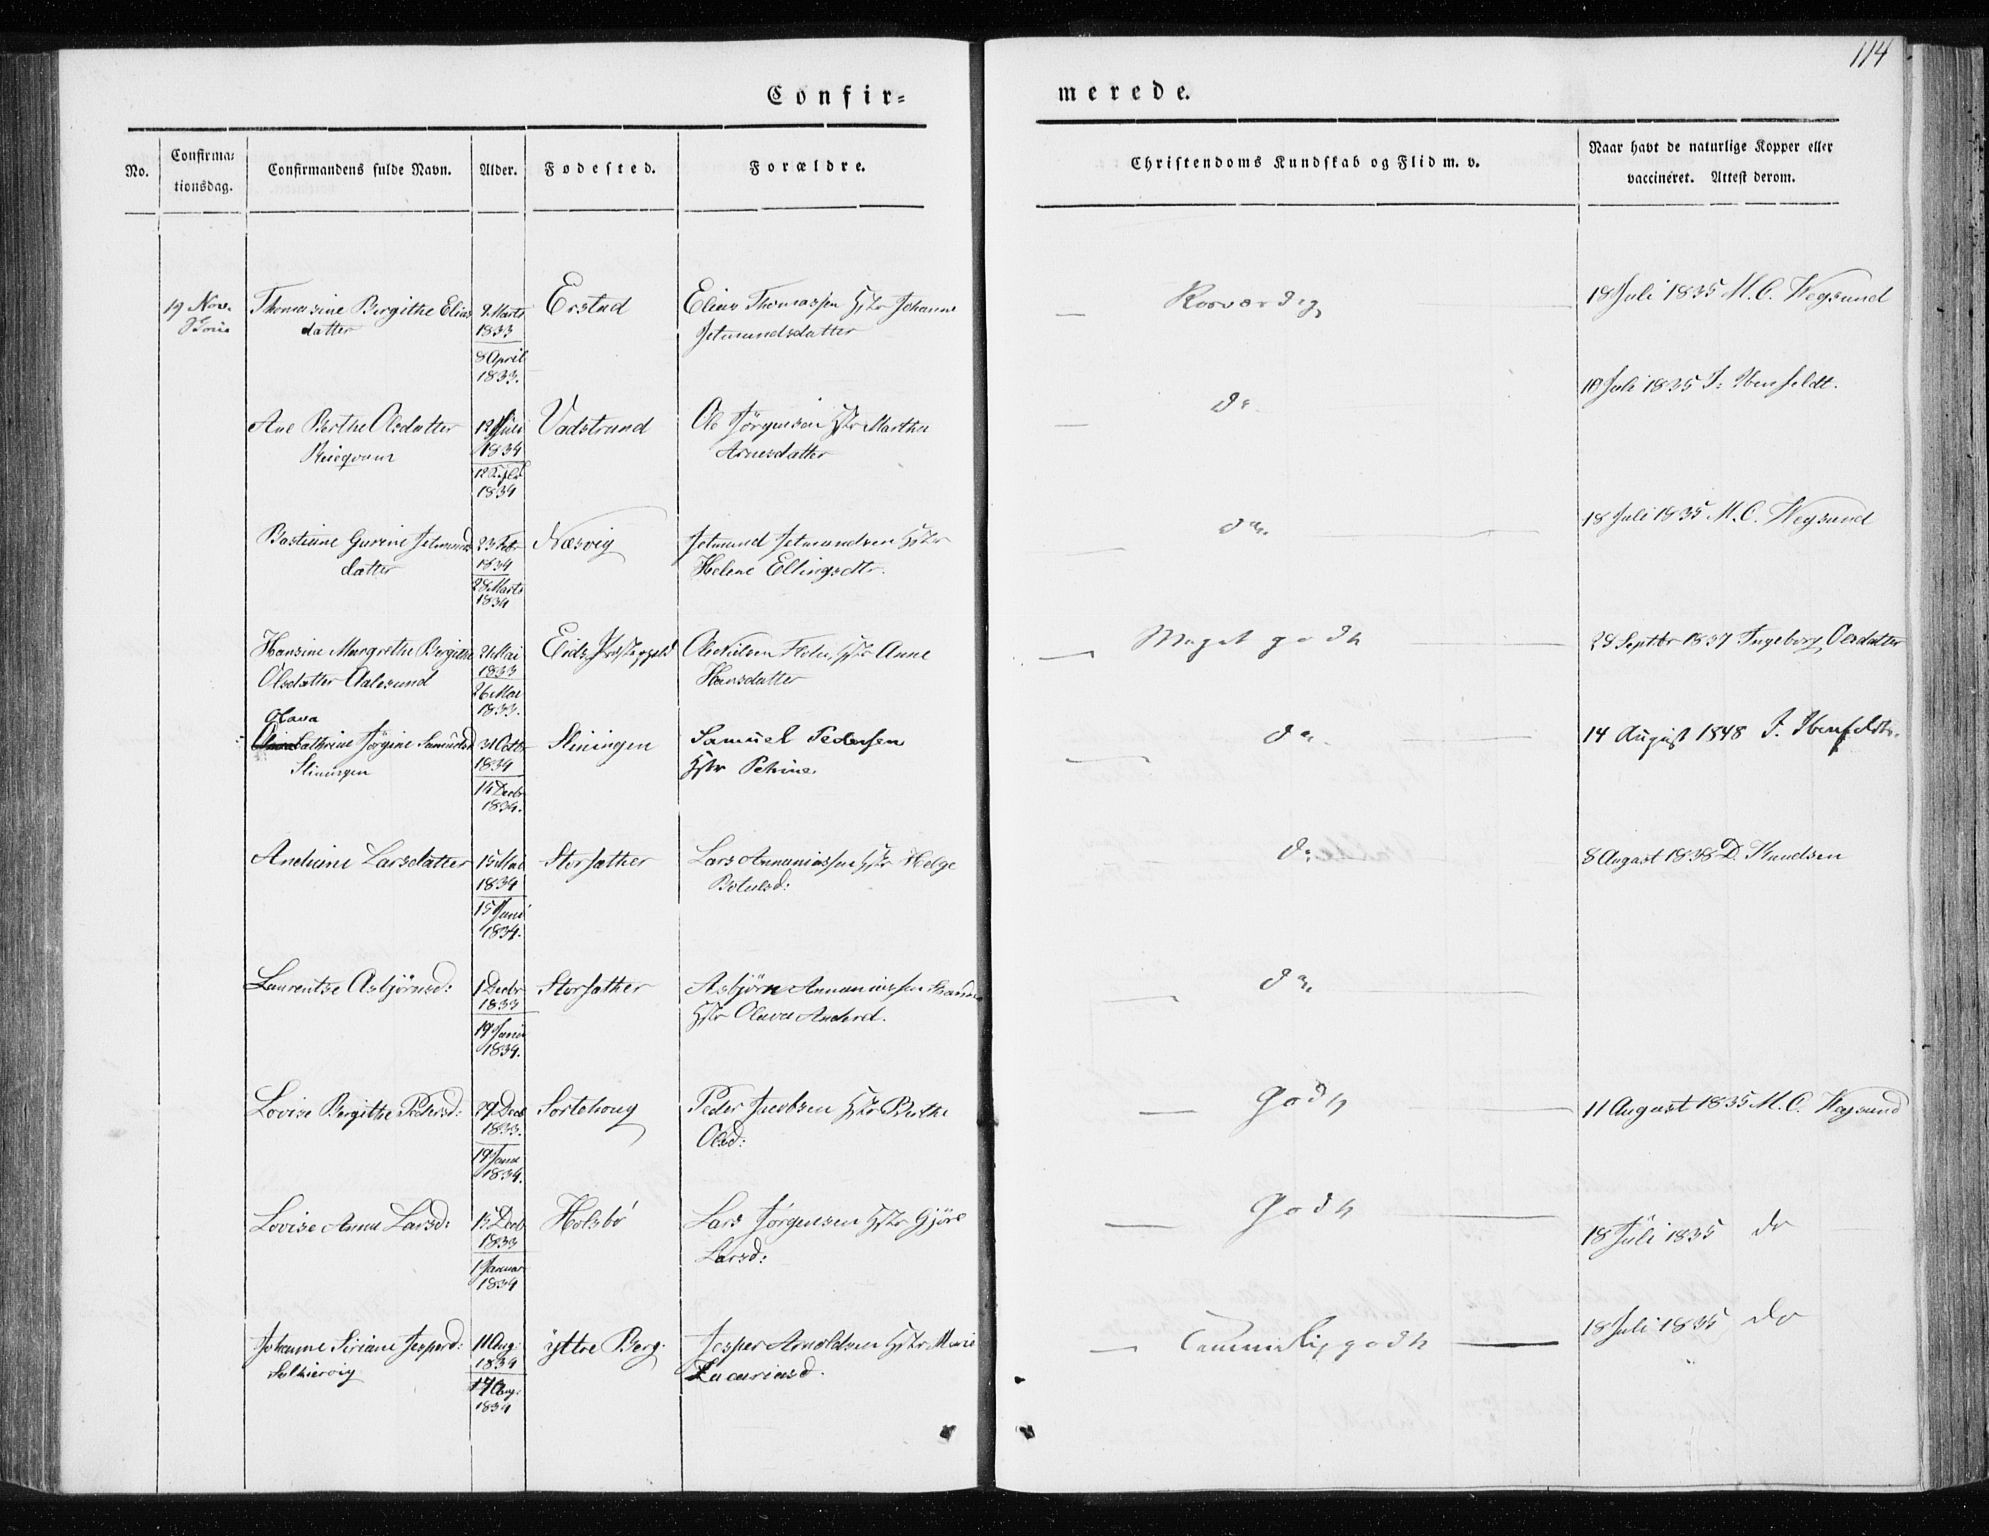 114
Confir-
merede.
No.
Confirma-
tionsdag.
Confirmandens fulde Navn.
Alder.
Fødested.
Forældre.
Christendoms Kundskab og Flid m. v.
Naar havt de naturlige Kopper eller
vaccineret. Attest derom.
19 Nov.
Thomasine Bergithe Elias
datter
9 Marts
1833
8 April
1833.
Erstad
Elias Thomassen Hstr Johanne
Jetmundsdatter
Rosværdig
18 Juli 1835 M. C. Wegsund
Ane Berthe Olsdatter
12 Juli
1834
1834
Vadstrand
Ole Jørgensen Hstr Martha
Arnesdatter
do
10 Juli 1835 J. Ibenfeldt.
Bastiane Gurine Jetmunds
datter
23 Febr
1834
28 Marts
1834
Næsvig
Jetmund Jetmundsen Hstr
Helene Ellingsdtr.
do.
18 Juli 1835 M. C. Wegsund
Hansine Margrethe Bergithe
Olsdatter Aalesund
2 Mai
1833
26 Mai
1833.
Eids Præstegjeld
Ole Nielsen Hstr Anne
Hansdatter
Meget godt
28 Septbr 1837 Ingeborg Olsdatter
Olava
Cathrine Jørgine Samuelsd
Sliningen
31 Octbr
1834
14 Decbr
1834.
Sliningen
Samuel Pedersen
Hstr Petrine
do.
14 August 1848 J. Ibenfeldt.
Andriane Larsdatter
15 Mai
1834
15 Juni
1834.
Storsæther
Lars Annaniassen Hstr Helge
Botulsd:
do
8 August 1838 D. Knudsen
Laurentse Asbjørnsd:
1 Decbr
1833
19 Janu
1834.
Storsæther
Asbjørn Annaniassen
Hstr Olava Andersd.
do
Lovise Bergithe Pedersd:
29 Decb
1833.
19 Janu
1834.
Sortehoug
Peder Jacobsen Hstr Berthe
Olsd:
Godt
11 August 1835 M. C. Wegsund
Lovise Anna Larsd:
15 Decb
1833
1 Januar
1834
Holsbø
Lars Jørgensen Hstr Gjøre
Larsd:
Godt
18 Juli 1835 do
Johanne Siriane Jespersd:
11 Aug:
1834
17 Aug:
1834
ÿttre Berg.
Jesper Arnoldsen Hstr Marie
Zacariasd.
Temmelig godt
18 Juli 1835 do